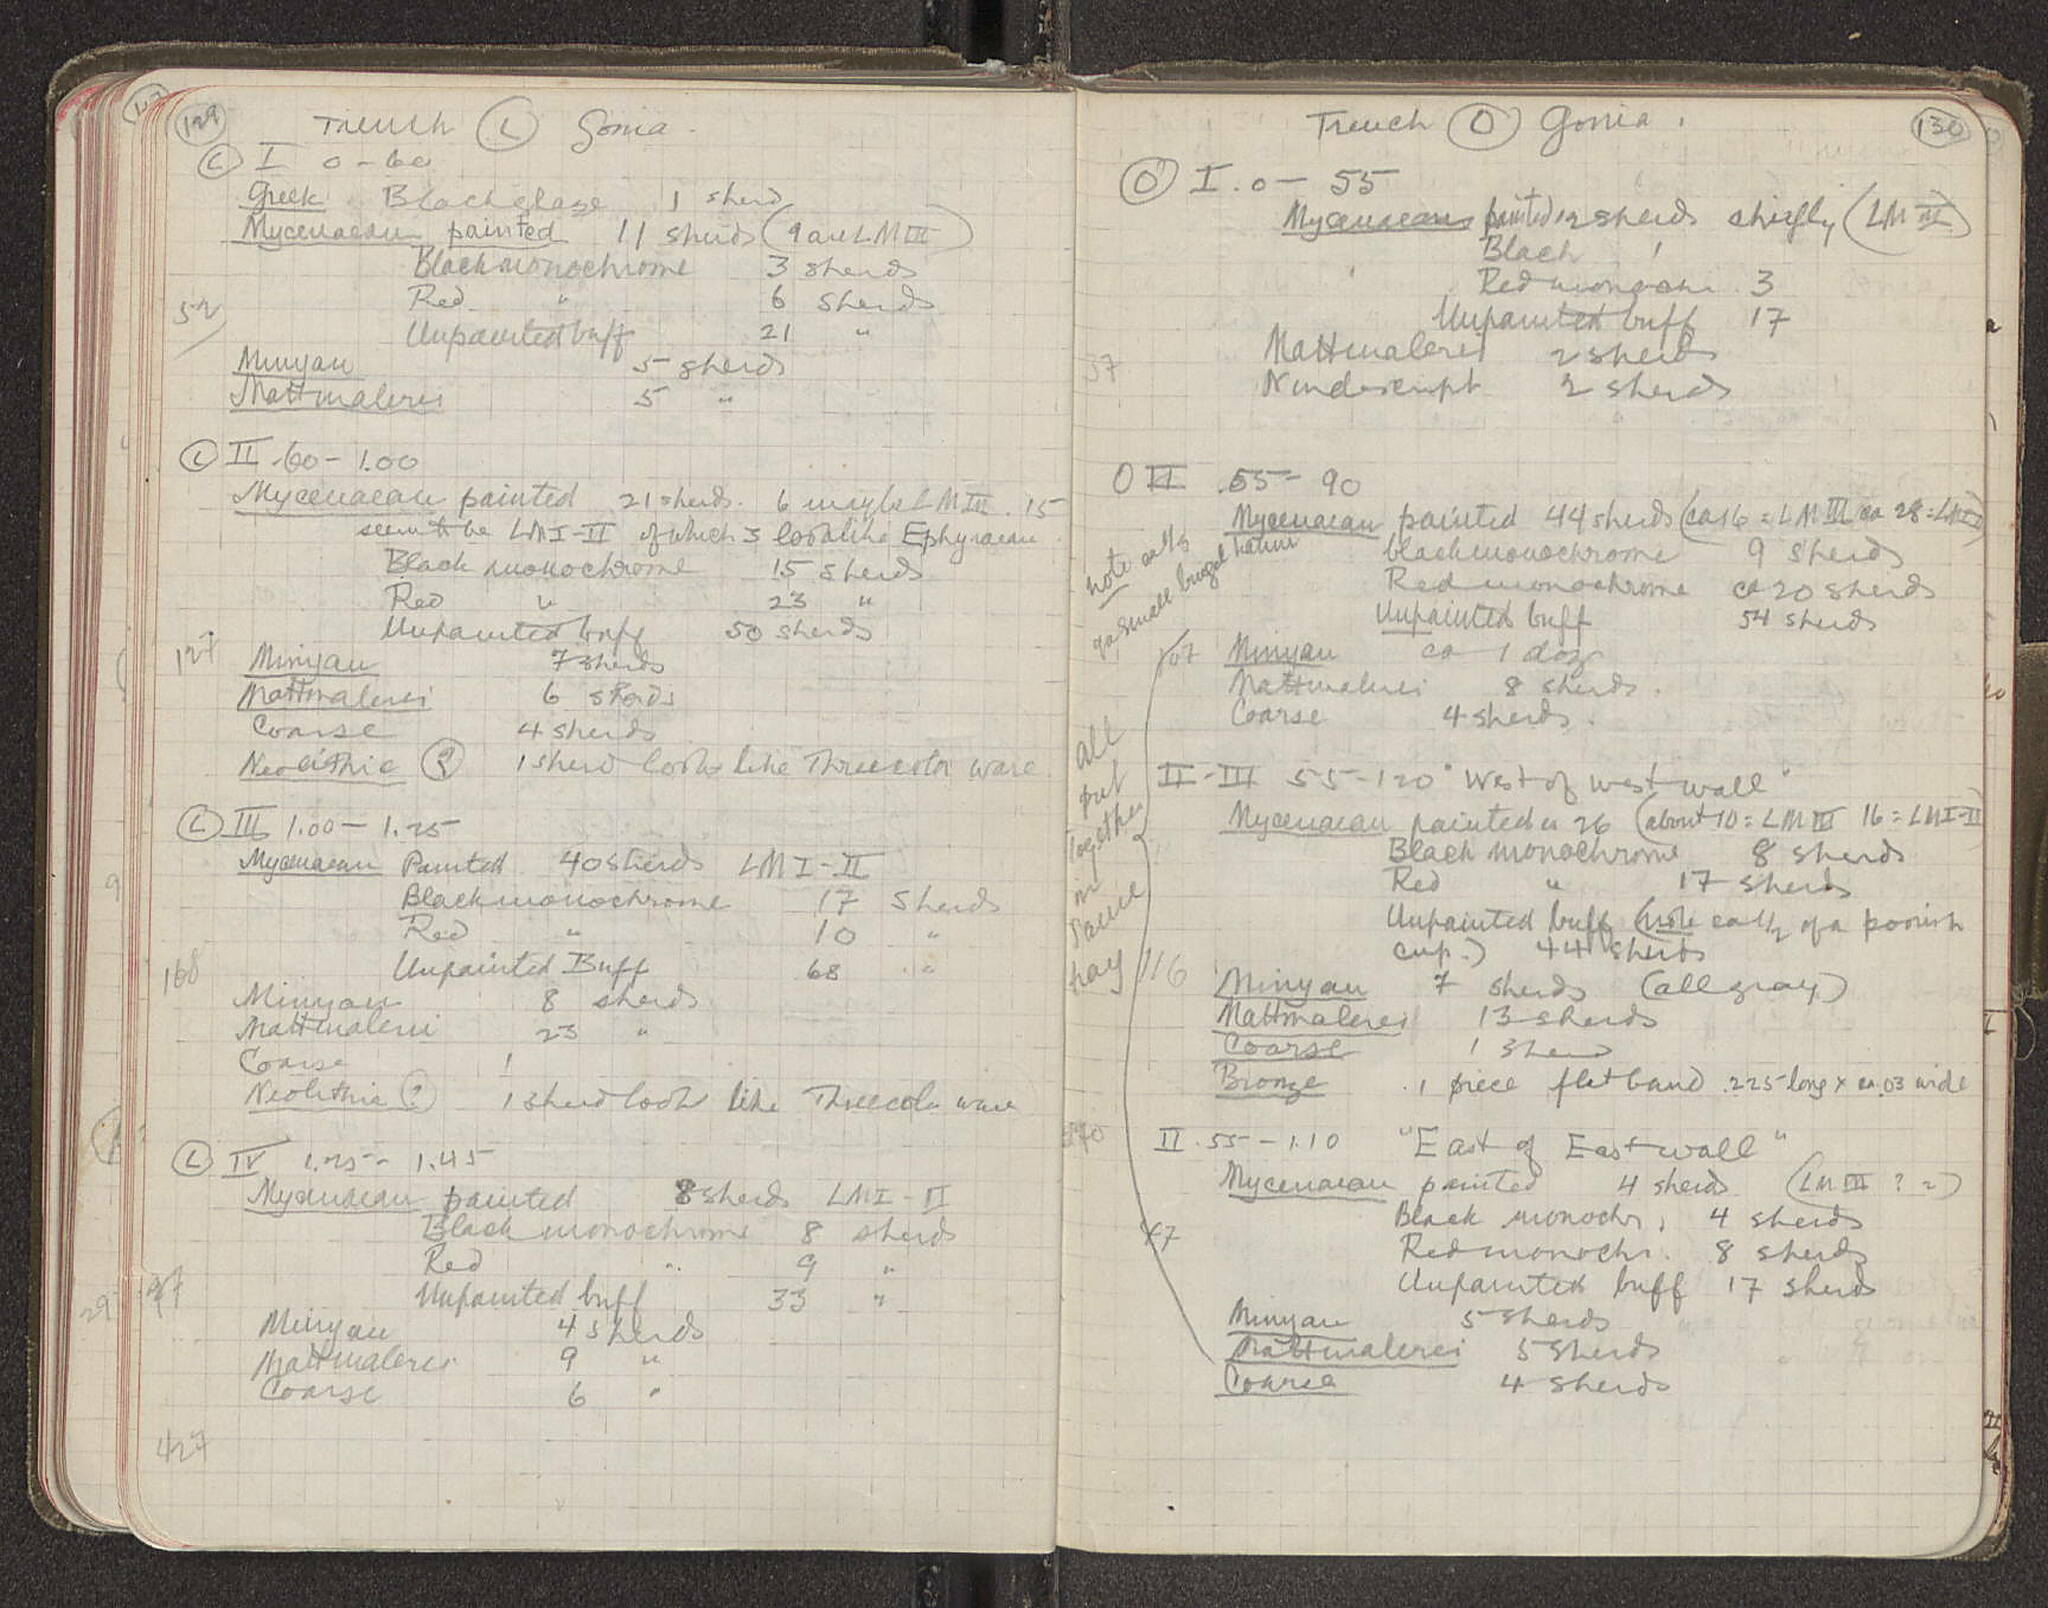 129
Trench L Gonia.
L I 0-60
Greek Blackglaze 1 sherd
Mycenaean painted 11 sherds (9 are LM III)
Black monochrome 3 sherds
Red " 6 sherds
52
Unpainted buff 21 "
Minyan 5 sherds
Mattmalerei 5 "
L II .60-1.00
Mycenaean painted 21 sherds. 6 maybe LM III. 15
seem to be LM I-II of which 3 look like Ephyraean
Black monochrome 15 sherds
Red " 23 "
Unpainted buff 50 sherds
127
Minyan 7 sherds
Mattmalerei 6 sherds
Coarse 4 sherds
Neolithic ? 1 sherd looks like Threecolor ware
L III 1.00-1.25
Mycenaean Painted 40 sherds LM I-II
Black monochrome 17 sherds
Red " 10 "
Unpainted Buff 68 "
168
Minyan 8 sherds
Mattmalerei 23 "
Coarse 1
Neolithic ? 1 sherd looks like Threecolor ware
L IV 1.25-1.45
Mycenaean painted 8 sherds LM I-II
Black monochrome 8 sherds
Red " 9 "
Unpainted buff 33 "
Minyan 4 sherds
Mattmalerei 9 "
Coarse 6 "
427
130
Trench O Gonia.
O I. 0-55
Mycenaean painted 12 sherds chiefly (LM III)
Black 1
Red monochr. 3
Unpainted buff 17
37
Mattmalerei 2 sherds
Nondescript 2 sherds
O II .55-90
Mycenaean painted 44 sherds (ca 16 = LM III ca 28 = LM I-II)
black monochrome 9 sherds
Red monochrome ca 20 sherds
Unpainted buff 54 sherds
note ca 1/2
of a small
Minyan ca 1 doz
Mattmalerei 8 sherds.
Coarse 4 sherds.
all
put
together
in
same
tray
II-III 55-120 "West of west wall"
Mycenaean painted 26 (about 10 = LM III 16 = LM I-II)
Black monochrome 8 sherds
Red " 17 sherds
Unpainted buff (note ca 1/2 of a poorish
cup.) 44 sherds
116
Minyan 7 sherds (all gray)
Mattmalerei 13 sherds
Coarse 1 sherd
Bronze 1 piece flat band .225 long x ca .03 wide
II .55-1.10 "East of East wall"
Mycenaean painted 4 sherds (LM III ? 2)
Black monochr. 4 sherds
Red monochr. 8 sherds
47
Unpainted buff 17 sherds
Minyan 5 sherds
Mattmalerei 5 sherds
Coarse 4 sherds